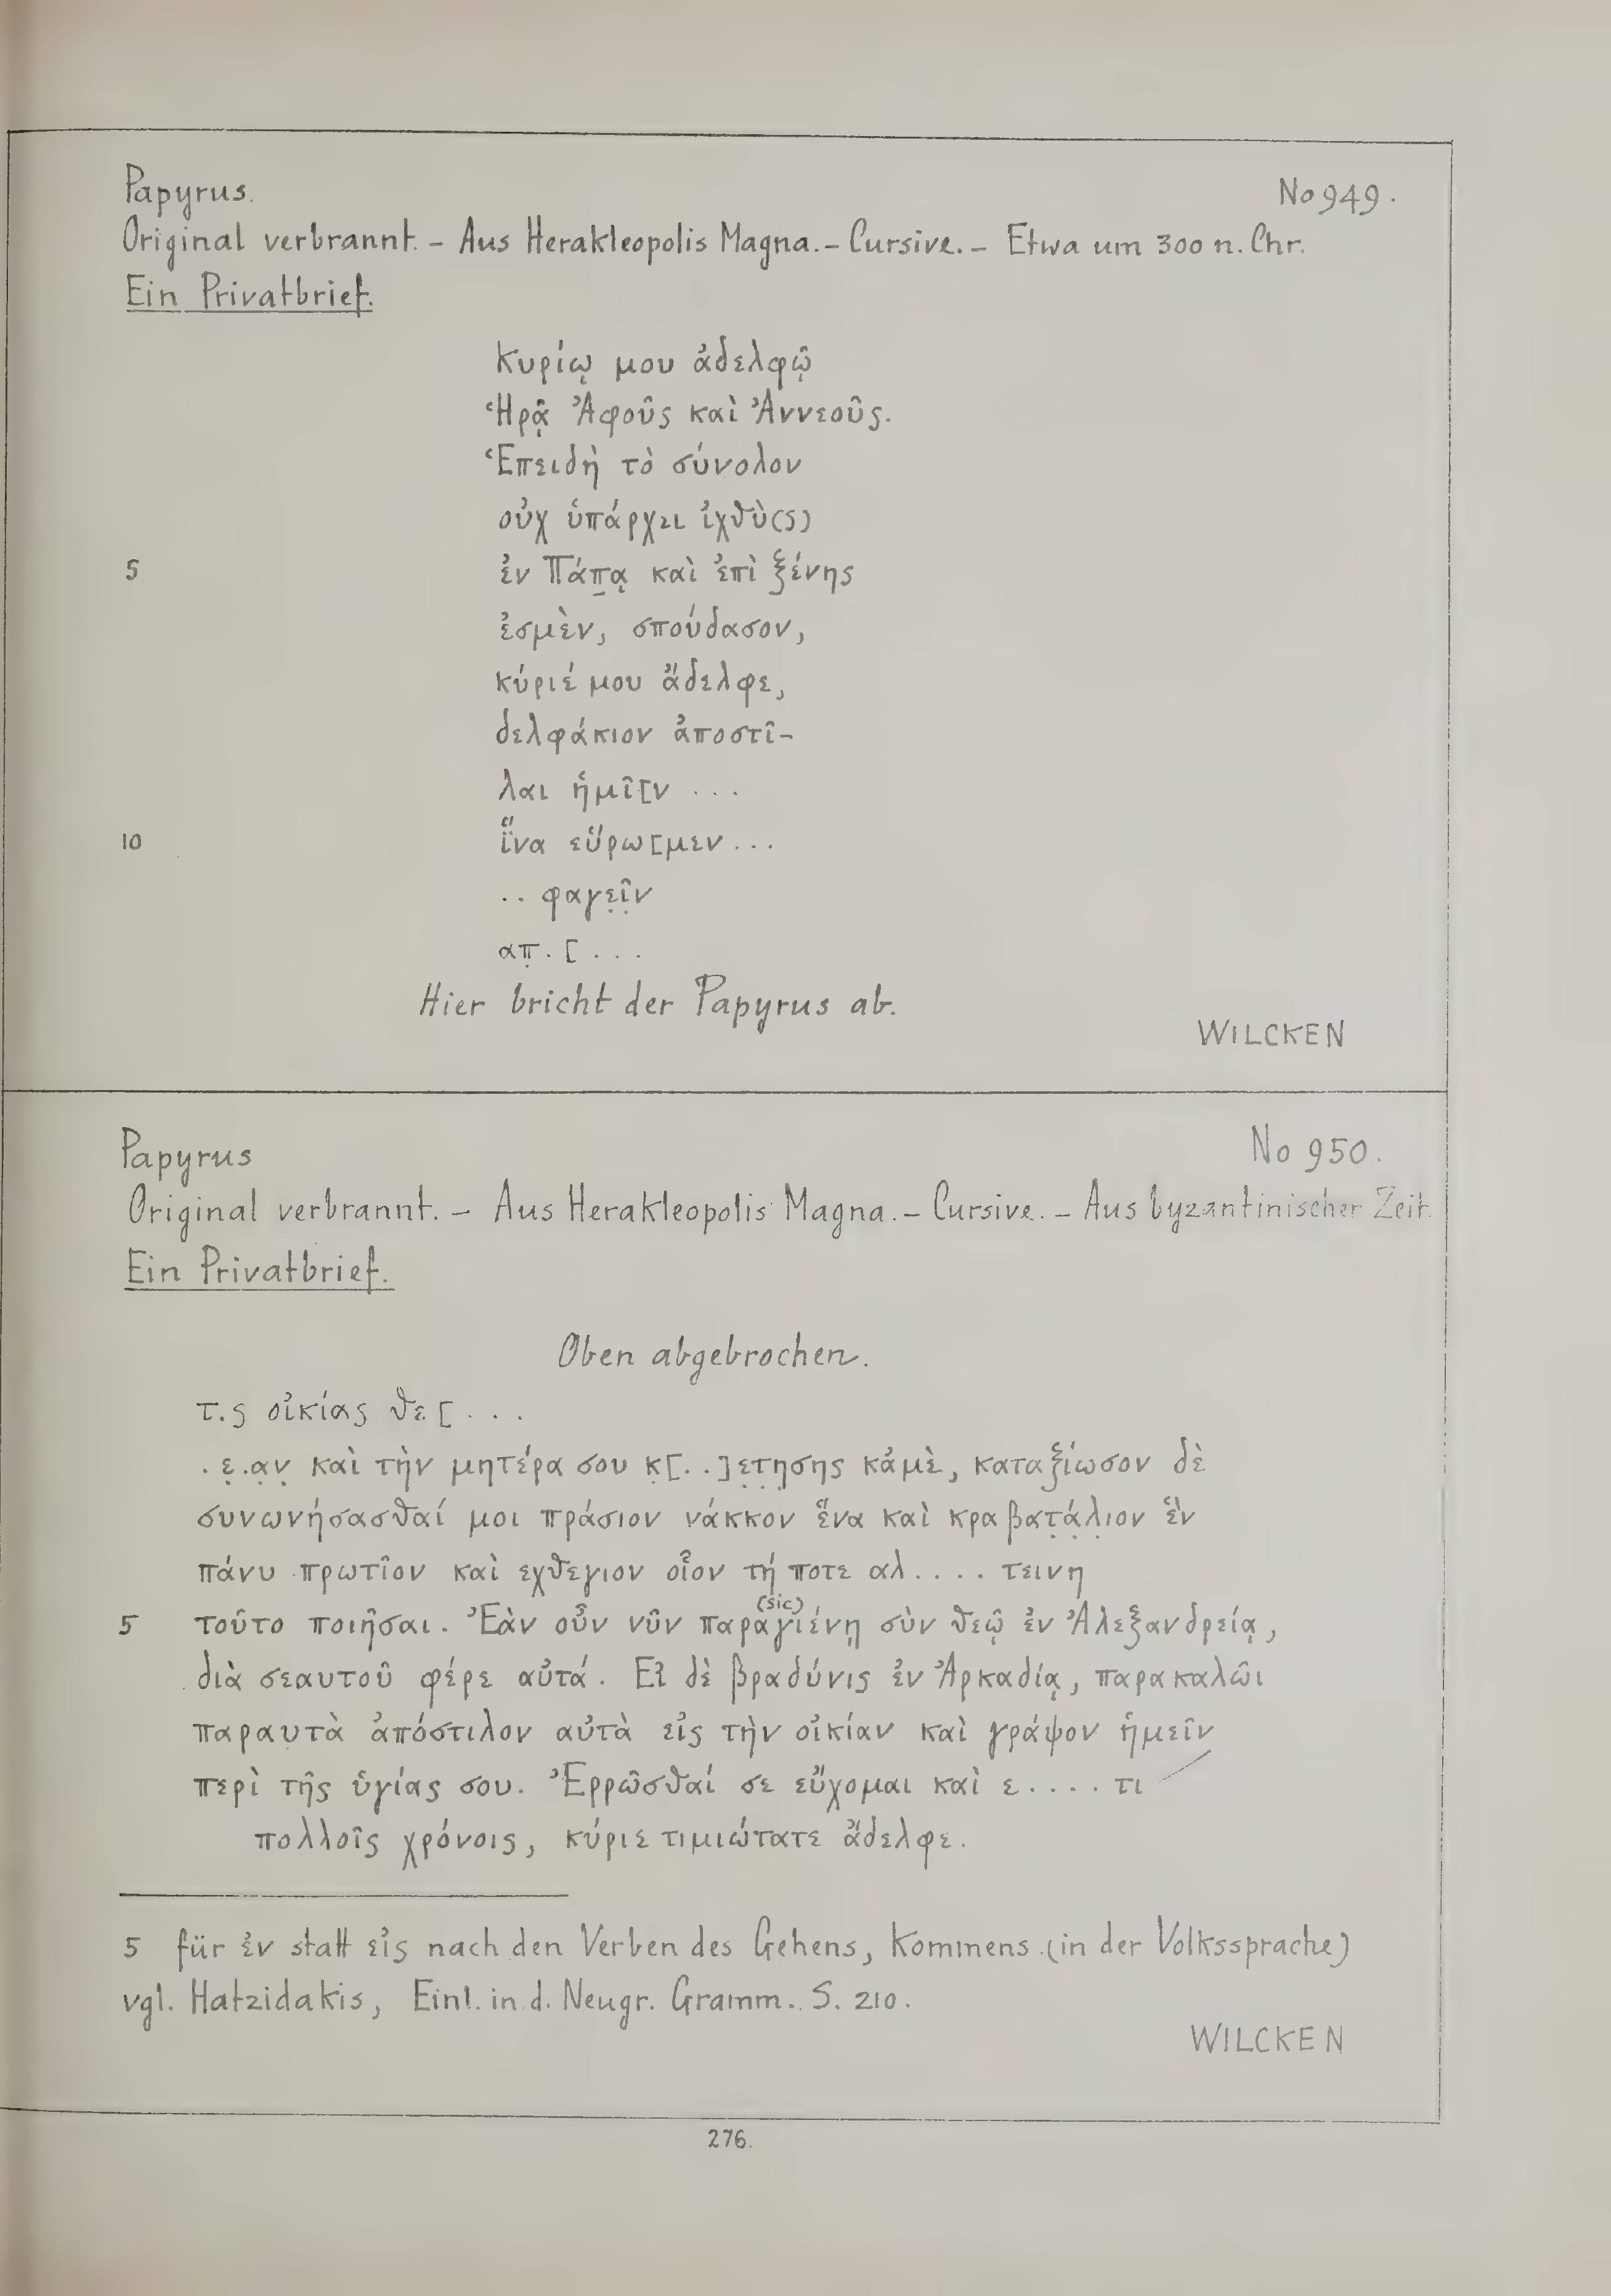 Papyrus. No 949.
Original verbrannt. – Aus Herakleopolis Magna. – Cursive. – Etwa um 300 n. Chr.
Ein Privatbrief.
Κυρίῳ μου ἀδελφῷ
Ἡρᾷ Ἀφοῦς καὶ Ἀννεοῦς.
Ἑπειδὴ τὸ σύνολον
οὐχ ὑπάρχει ἰχθὺ(ς)
5 ἐν Πάπᾳ καὶ ἐπὶ ξένης
ἐσμὲν, σπούδασον,
κύριέ μου ἄδελφε,
δελφάκιον ἀποστῖ-
λαι ἡμῖ[ν ...
10 ἵ̈να εὕρω[μεν ...
.. φαγẹῖ̣ν
απ̣. [ ...
Hier bricht der Papyrus ab.
WILCKEN
Papyrus No 950.
Original verbrannt. – Aus Herakleopolis Magna. – Cursive. – Aus byzantinischer Zeit.
Ein Privatbrief.
Oben abgebrochen.
τ.ς οἰκίας θε[ ...
. ε̣.α̣ν̣ καὶ τὴν μητέρα σου κ̣[..]ε̣τ̣η̣σης κἀμὲ, καταξίωσον δὲ
συνωνήσασθαί μοι πράσιον νάκκον ἕνα καὶ κραβατ̣ά̣λ̣ιον ἓν
πάνυ πρωτῖον καὶ εχθεγιον οἷον τή ποτε αλ.... τεινη
5 τοῦτο ποιῆσαι. Ἐὰν οὖν νῦν παραγιένῃ (sic) σὺν θεῷ ἐν Ἀλεξανδρείᾳ,
διὰ σεαυτοῦ φέρε αὐτά. Εἰ δὲ βραδύνις ἐν Ἀρκαδίᾳ, παρακαλῶι
παραυτὰ ἀπόστιλον αὐτὰ εἰς τὴν οἰκίαν καὶ γράψον ἡμεῖν
περὶ τῆς ὑγίας σου. Ἐρρῶσθαί σε εὔχομαι καὶ ε.... τι ⁄
πολλοῖς χρόνοις, κύριε τιμιώτατε ἄδελφε.
5 für ἐν statt εἰς nach den Verben des Gehens, Kommens (in der Volkssprache)
vgl. Hatzidakis, Einl. in d. Neugr. Gramm. S. 210.
WILCKEN
276.